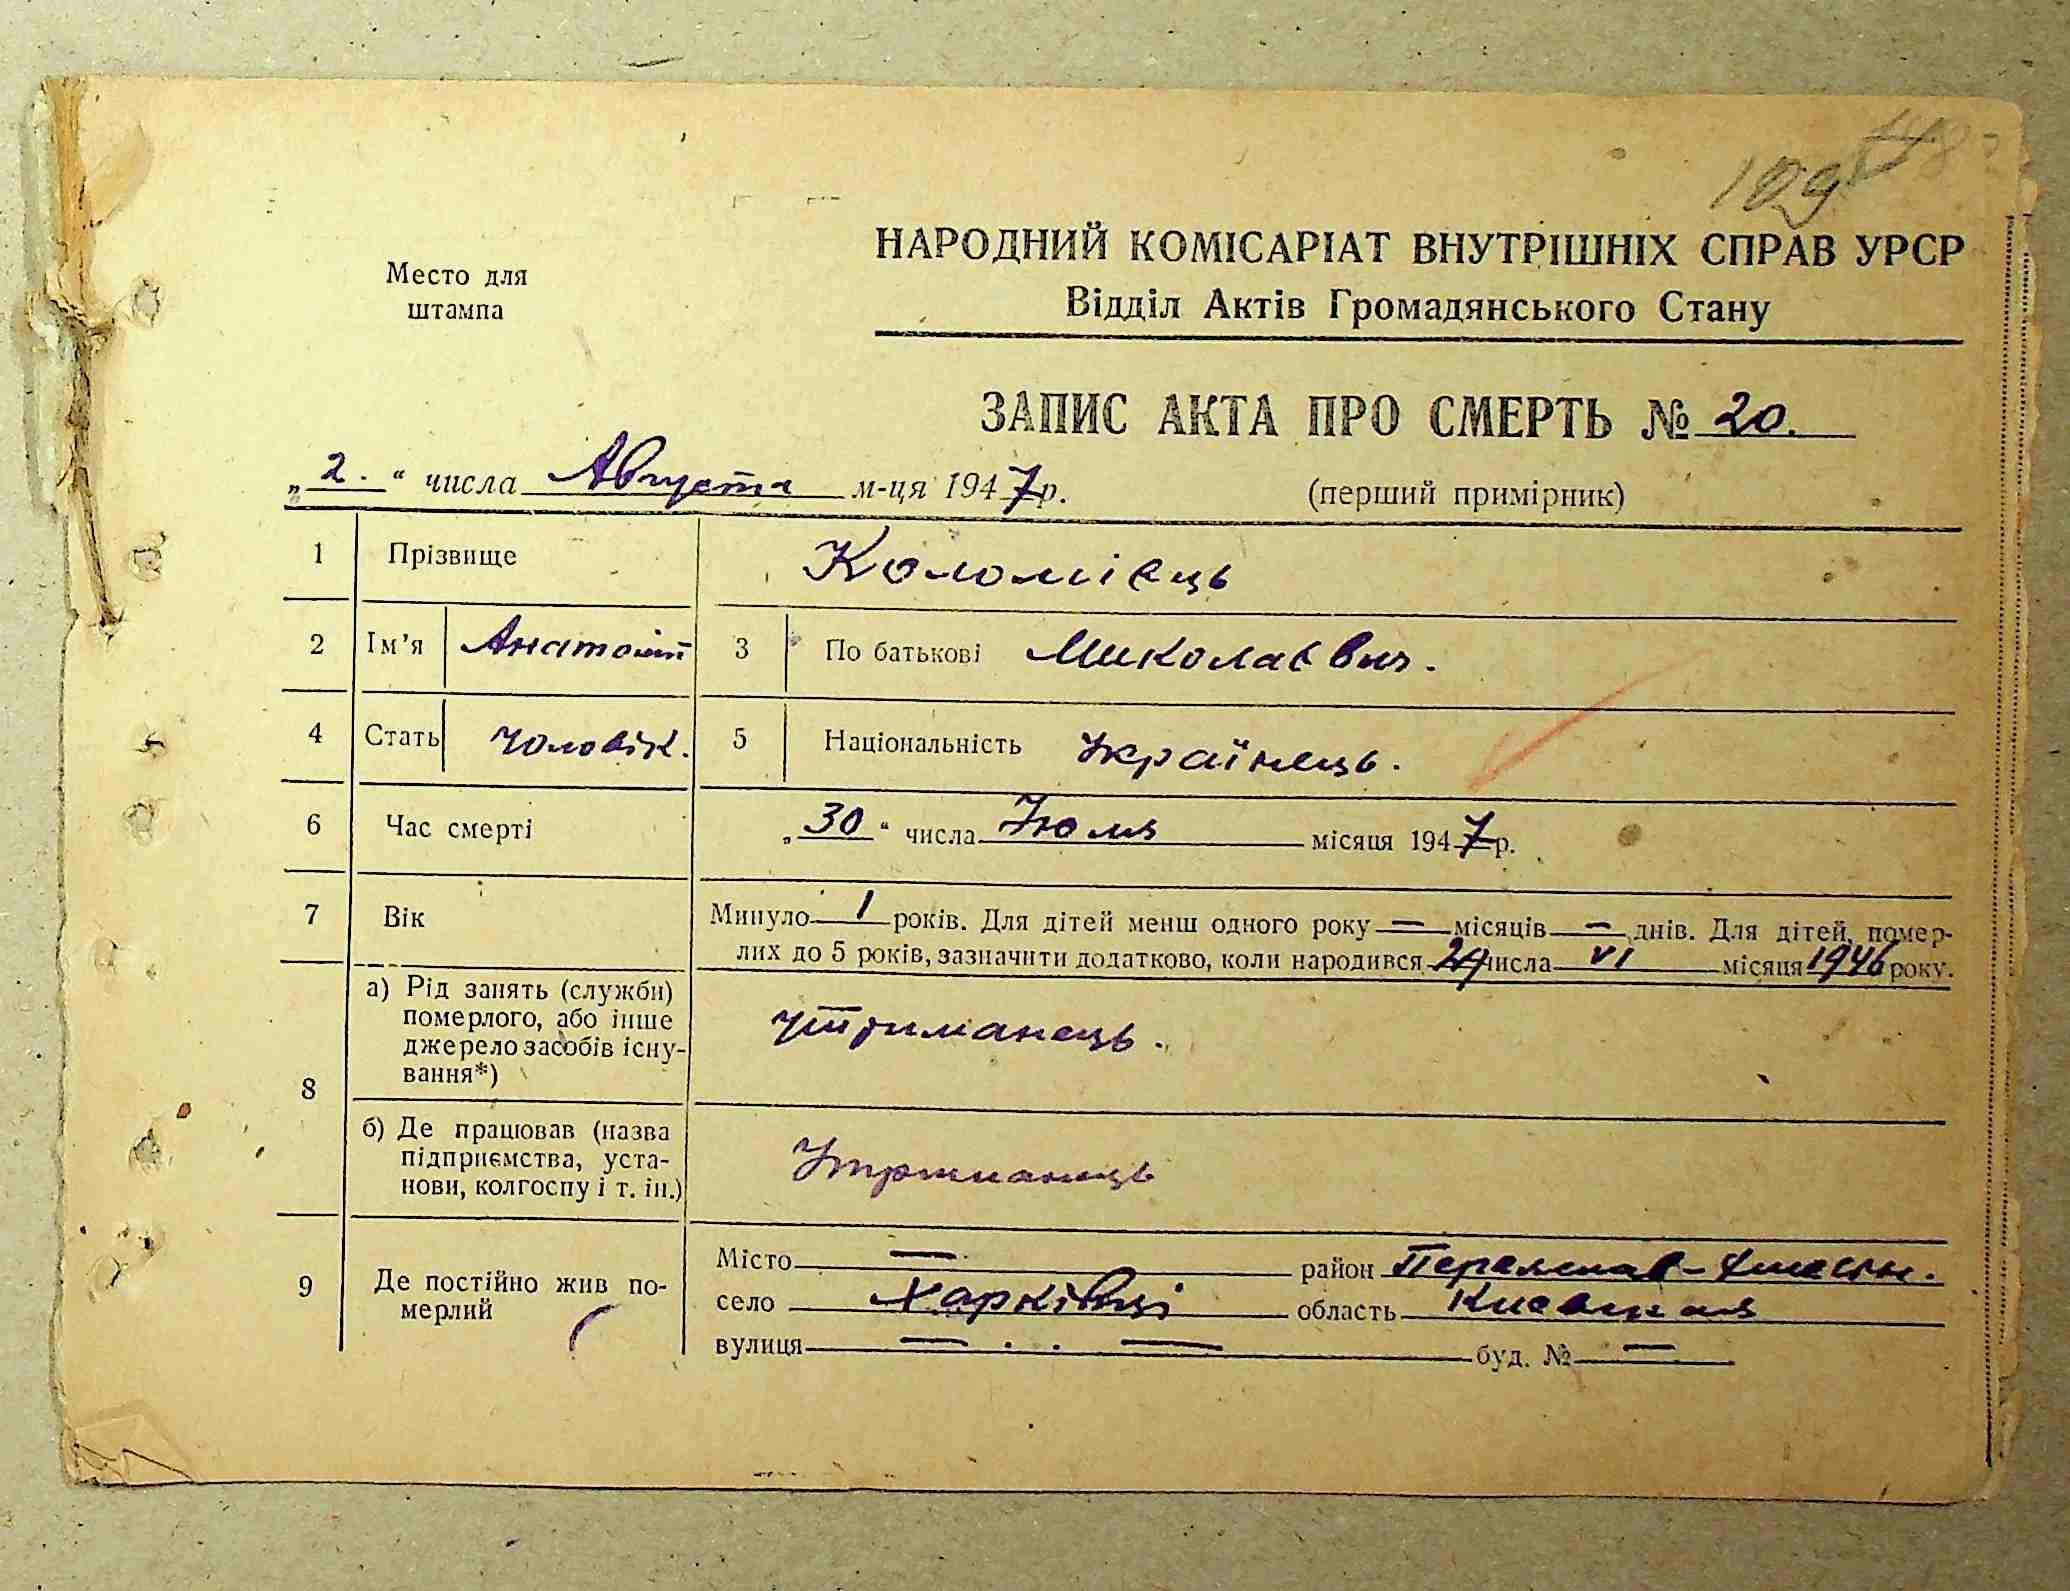 109
НАРОДНИЙ КОМІСАРІАТ ВНУТРІШНІХ СПРАВ УРСР
Место для штампа
Відділ Актів Громадянського Стану
ЗАПИС АКТА ПРО СМЕРТЬ № 20.
„2.“ числа Августа м-ця 1947 р. (перший примірник)
1 Прізвище Коломієць
2 Ім'я Анатолій 3 По батькові Миколаєвич.
4 Стать чоловік. 5 Національність Українець.
6 Час смерті „30“ числа Июля місяця 1947 р.
7 Вік Минуло 1 років. Для дітей менш одного року — місяців — днів. Для дітей, помер-
лих до 5 років, зазначити додатково, коли народився числа VI місяця 1946 року.
8 а) Рід занять (служби)
померлого, або інше
джерело засобів існу-
вання*)
утриманець.
б) Де працював (назва
підприємства, уста-
нови, колгоспу і т. ін.)
Утриманець
9 Де постійно жив по-
мерлий
Місто — район Переяслав-Хмельн.
село Харківці область Киевская
вулиця — . . — буд. № —